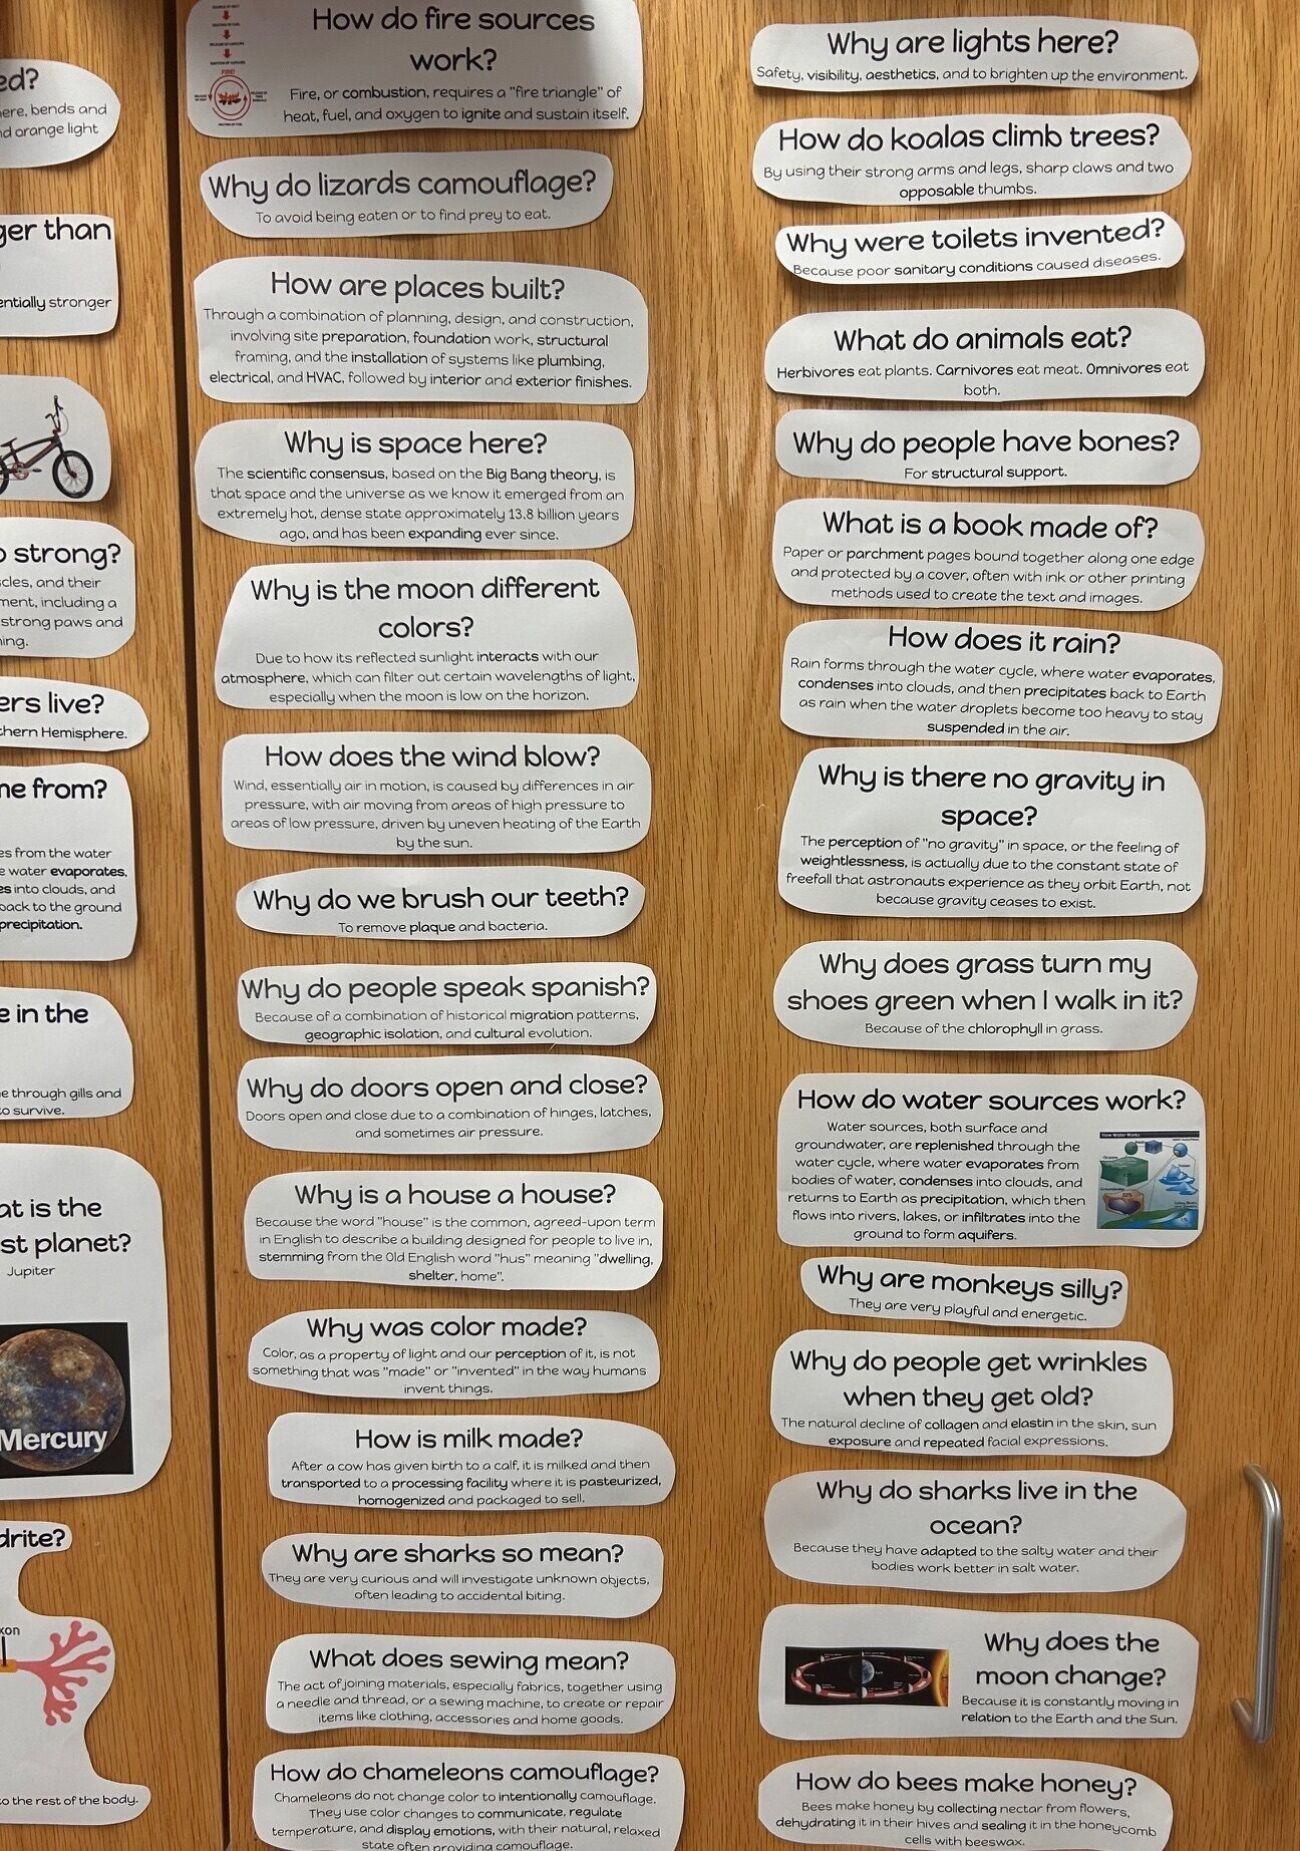 ed?
ere, bends and
nd orange light
ger than
entially stronger
o strong?
cles, and their
ment, including a
strong paws and
ning.
ers live?
thern Hemisphere.
me from?
es from the water
e water evaporates,
es into clouds, and
back to the ground
precipitation.
e in the
e through gills and
to survive.
at is the
st planet?
Jupiter
Mercury
drite?
xon
to the rest of the body.
How do fire sources
work?
FIRE!
Fire, or combustion, requires a "fire triangle" of
heat, fuel, and oxygen to ignite and sustain itself.
Why do lizards camouflage?
To avoid being eaten or to find prey to eat.
How are places built?
Through a combination of planning, design, and construction,
involving site preparation, foundation work, structural
framing, and the installation of systems like plumbing,
electrical, and HVAC, followed by interior and exterior finishes.
Why is space here?
The scientific consensus, based on the Big Bang theory, is
that space and the universe as we know it emerged from an
extremely hot, dense state approximately 13.8 billion years
ago, and has been expanding ever since.
Why is the moon different
colors?
Due to how its reflected sunlight interacts with our
atmosphere, which can filter out certain wavelengths of light,
especially when the moon is low on the horizon.
How does the wind blow?
Wind, essentially air in motion, is caused by differences in air
pressure, with air moving from areas of high pressure to
areas of low pressure, driven by uneven heating of the Earth
by the sun.
Why do we brush our teeth?
To remove plaque and bacteria.
Why do people speak spanish?
Because of a combination of historical migration patterns,
geographic isolation, and cultural evolution.
Why do doors open and close?
Doors open and close due to a combination of hinges, latches,
and sometimes air pressure.
Why is a house a house?
Because the word "house" is the common, agreed-upon term
in English to describe a building designed for people to live in,
stemming from the Old English word "hus" meaning "dwelling,
shelter, home".
Why was color made?
Color, as a property of light and our perception of it, is not
something that was "made" or "invented" in the way humans
invent things.
How is milk made?
After a cow has given birth to a calf, it is milked and then
transported to a processing facility where it is pasteurized,
homogenized and packaged to sell.
Why are sharks so mean?
They are very curious and will investigate unknown objects,
often leading to accidental biting.
What does sewing mean?
The act of joining materials, especially fabrics, together using
a needle and thread, or a sewing machine, to create or repair
items like clothing, accessories and home goods.
How do chameleons camouflage?
Chameleons do not change color to intentionally camouflage.
They use color changes to communicate, regulate
temperature, and display emotions, with their natural, relaxed
state often providing camouflage.
Why are lights here?
Safety, visibility, aesthetics, and to brighten up the environment.
How do koalas climb trees?
By using their strong arms and legs, sharp claws and two
opposable thumbs.
Why were toilets invented?
Because poor sanitary conditions caused diseases.
What do animals eat?
Herbivores eat plants. Carnivores eat meat. Omnivores eat
both.
Why do people have bones?
For structural support.
What is a book made of?
Paper or parchment pages bound together along one edge
and protected by a cover, often with ink or other printing
methods used to create the text and images.
How does it rain?
Rain forms through the water cycle, where water evaporates,
condenses into clouds, and then precipitates back to Earth
as rain when the water droplets become too heavy to stay
suspended in the air.
Why is there no gravity in
space?
The perception of "no gravity" in space, or the feeling of
weightlessness, is actually due to the constant state of
freefall that astronauts experience as they orbit Earth, not
because gravity ceases to exist.
Why does grass turn my
shoes green when I walk in it?
Because of the chlorophyll in grass.
How do water sources work?
Water sources, both surface and
groundwater, are replenished through the
water cycle, where water evaporates from
bodies of water, condenses into clouds, and
returns to Earth as precipitation, which then
flows into rivers, lakes, or infiltrates into the
ground to form aquifers.
Why are monkeys silly?
They are very playful and energetic.
Why do people get wrinkles
when they get old?
The natural decline of collagen and elastin in the skin, sun
exposure and repeated facial expressions.
Why do sharks live in the
ocean?
Because they have adapted to the salty water and their
bodies work better in salt water.
Why does the
moon change?
Because it is constantly moving in
relation to the Earth and the Sun.
How do bees make honey?
Bees make honey by collecting nectar from flowers,
dehydrating it in their hives and sealing it in the honeycomb
cells with beeswax.